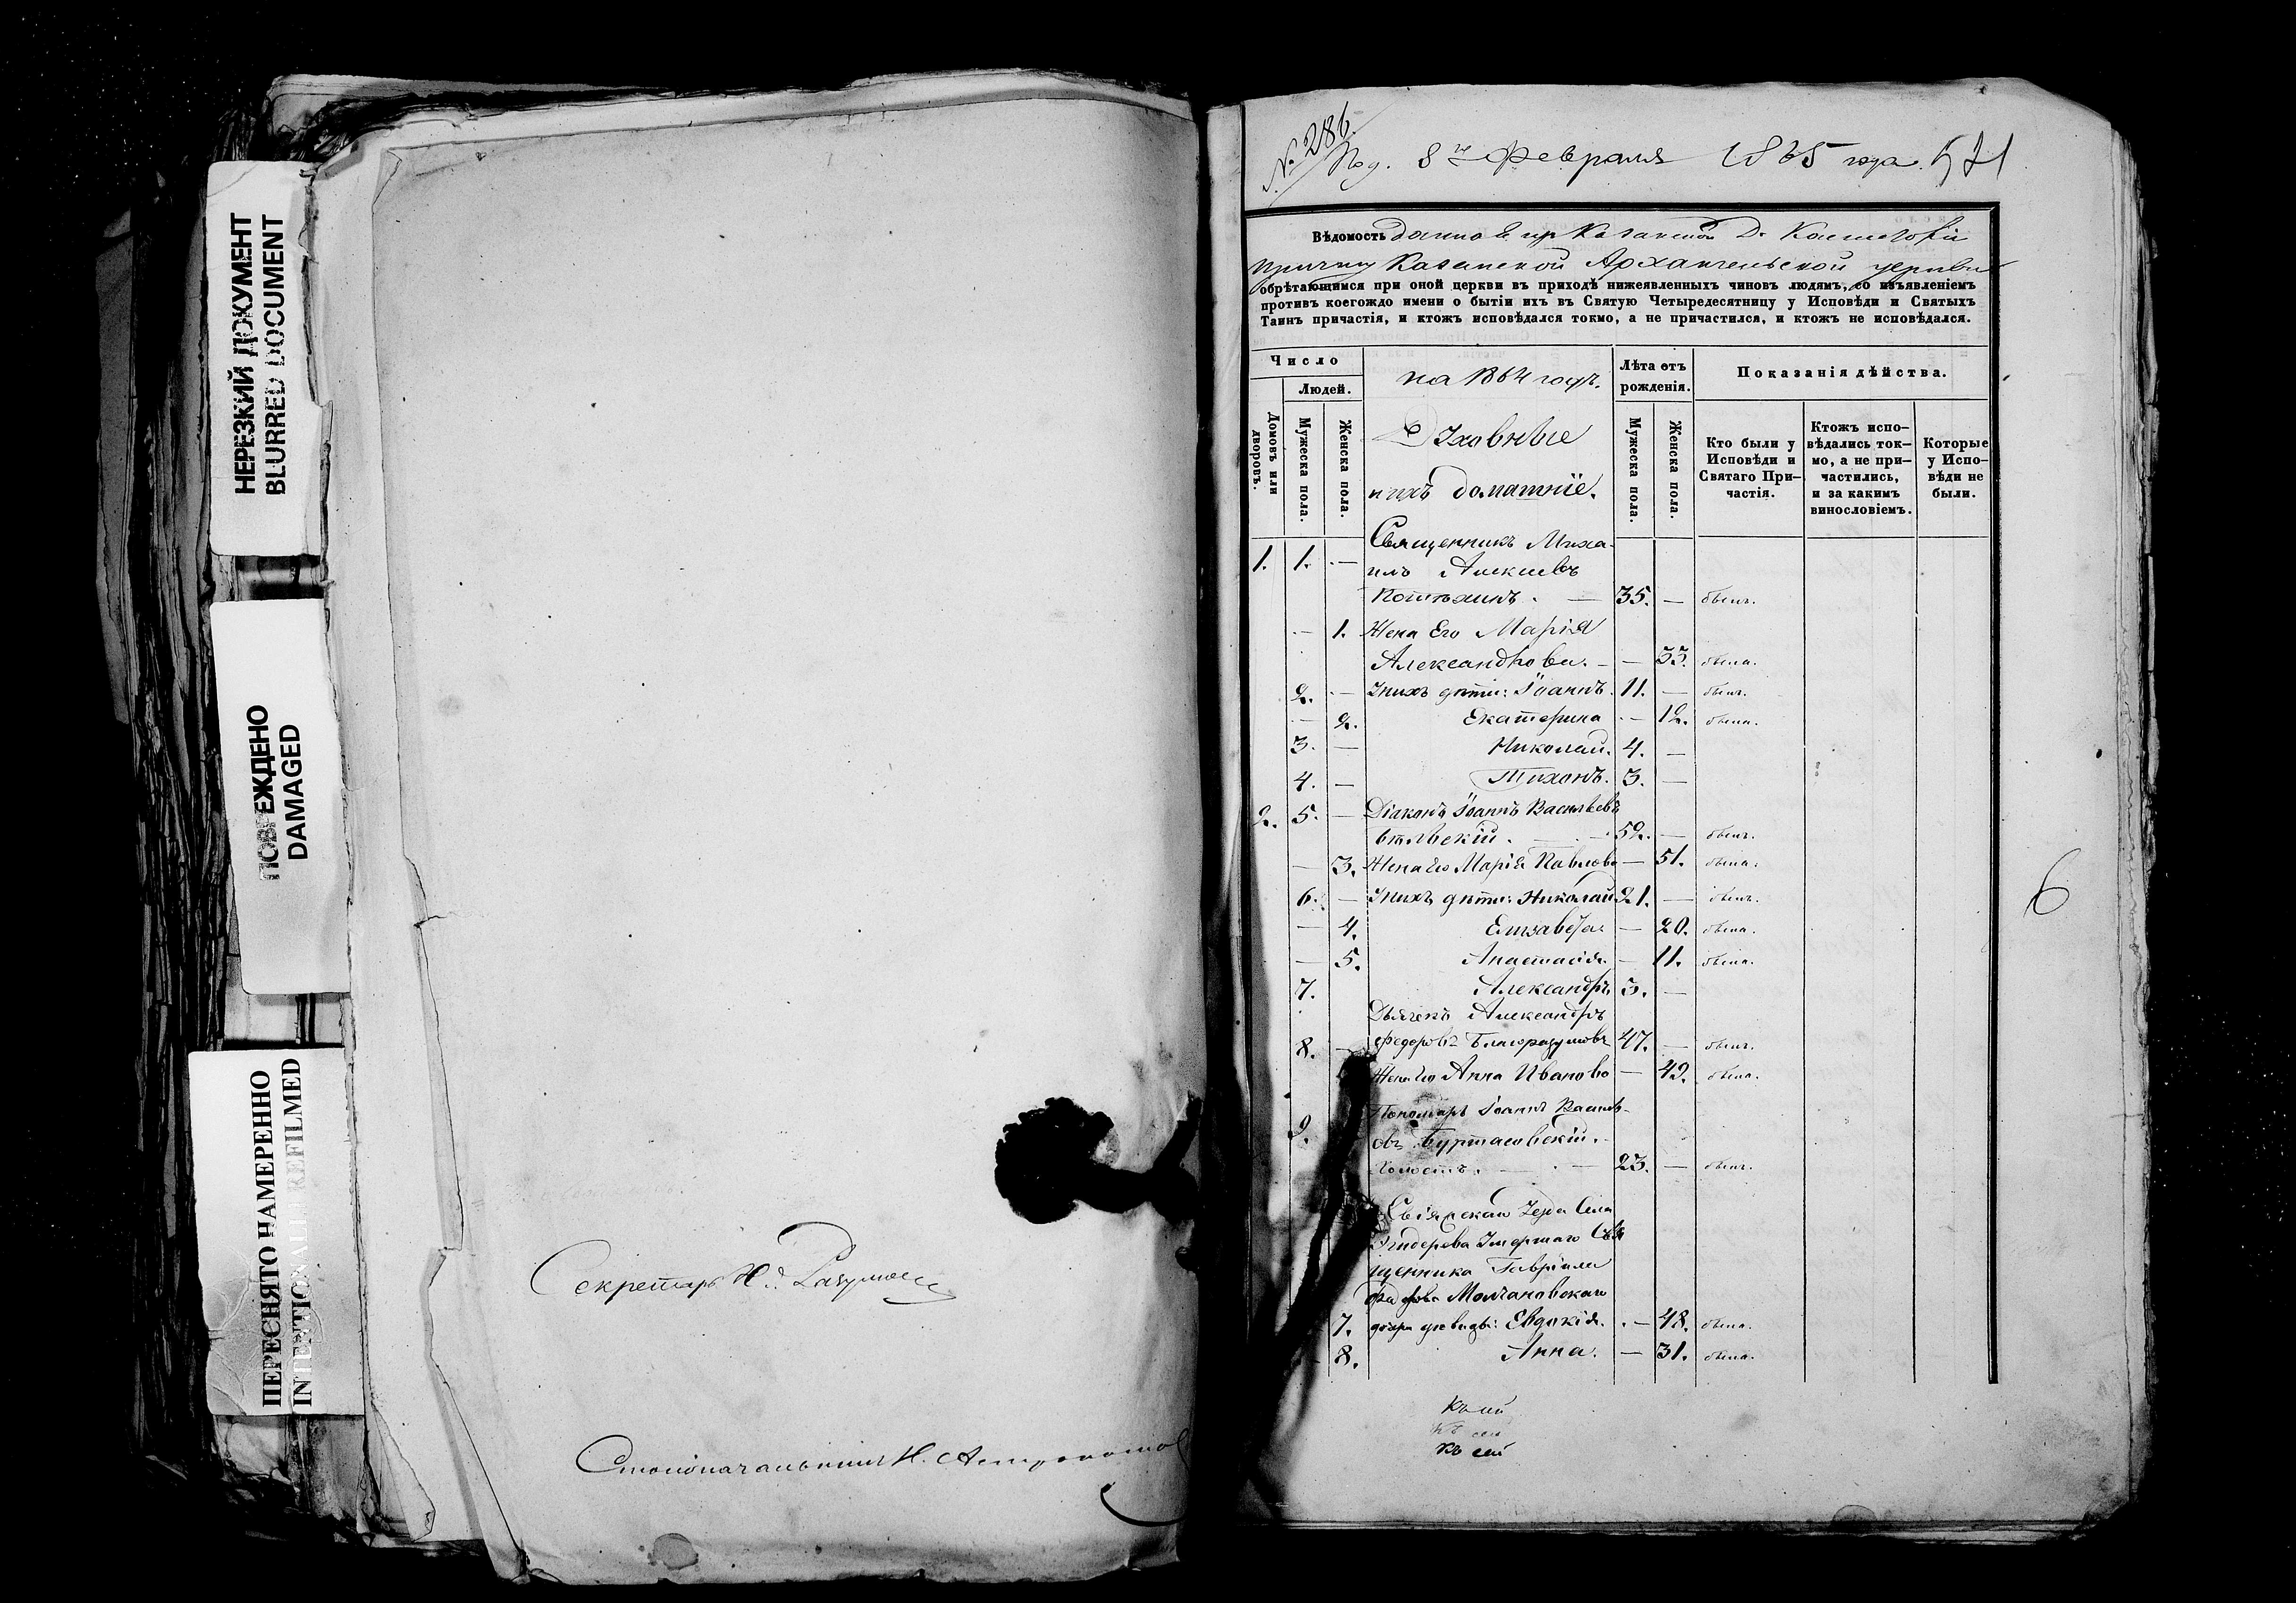 НЕРЕЗКИЙ ДОКУМЕНТ
BLURRED DOCUMENT
ПОВРЕЖДЕНО
DAMAGED
ПЕРЕСНЯТО НАМЕРЕННО
INTENTIONALLY REFILMED
Секретарь
Столоначальникъ Н.
№ 286.
Под. 8 Февраля 1865 года. 571
Вѣдомость
причту Казанской Архангельской церкви
обрѣтающимся при оной церкви въ приходѣ нижеявленныхъ чиновъ людямъ, со изъявленіемъ
противъ коегождо имени о бытіи ихъ въ Святую Четыредесятницу у Исповѣди и Святыхъ
Таинъ причастія, и ктожъ исповѣдался токмо, а не причастился, и ктожъ не исповѣдался.
Число
Людей.
Домовъ или дворовъ.
Мужеска пола.
Женска пола.
на 1864 годъ.
Духовные
и ихъ домашніе.
Лѣта отъ рожденія.
Мужеска пола.
Женска пола.
Показанія дѣйства.
Кто были у Исповѣди и Святаго При-частія.
Ктожъ испо-вѣдались ток-мо, а не при-частились, и за какимъ винословіемъ.
Которые у Испо-вѣди не были.
1. 1. — Священникъ Миха-
илъ Алексѣевъ
35. — былъ.
— 1. Жена Его Марія
Александрова. — 33. была.
2. — У нихъ дѣти: Іоаннъ. 11. — былъ.
— 2. Екатерина — 12. была.
3. — Николай. 4. —
4. — Тихонъ. 3. —
2. 5. — Діаконъ Іоаннъ Васильевъ
52. — былъ.
— 3. Жена Его Марія Павлова — 51. была.
6. — У нихъ дѣти: Николай 21. — былъ.
— 4. Елизавета — 20. была.
— 5. Анастасія. — 11. была.
7. Александръ 3. —
Дьячекъ Александръ
8. — Федоровъ Благоразумовъ 47. — былъ.
Жена Его Анна Иванова — 42. была.
Пономарь Іоаннъ Василь-
9. евъ Буртасовскій.
Холостъ. — 23. — былъ.
Свіяжскаго Уезда Села
Умершаго Свя
щенника Гавріила
Молчановскаго
7. дѣвицы: Евдокія. — 48. была.
8. Анна. — 31. была.
къ сей
къ сей
6